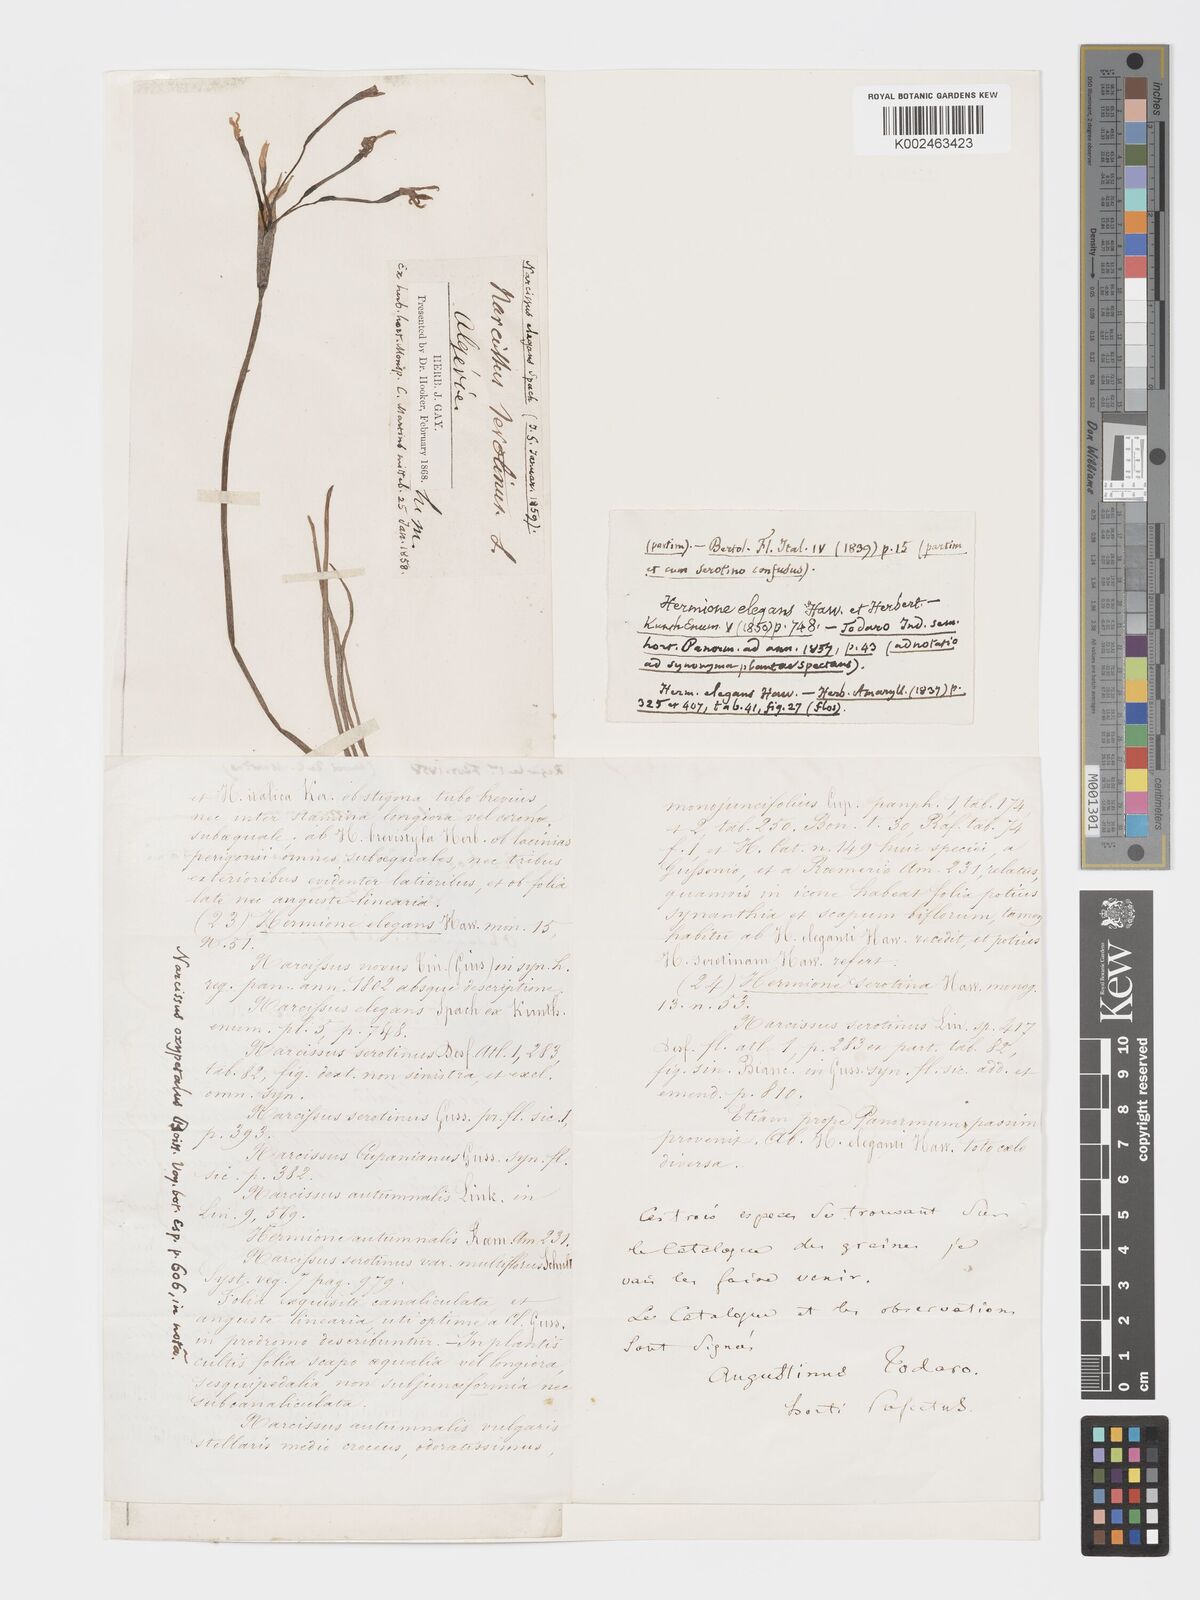 ROYAL BOTANIC GARDENS KEW
K002463423
Narcissus elegans Spach (J. G. Januar. 1859).
Narcissus serotinus. L.
Algérie.
HERB. J. GAY.
Presented by Dr. Hooker, February 1868.
h. m.
Ex herb. hort. Monsp. C. Martins mitteb. 25 Jan. 1858.
(partim). — Bertol. Fl. Ital. IV (1839) p. 15 (partim
et cum serotino confusus).
Hermione elegans Haw. et Herbert —
Kunth Enum. V (1850) p. 748. — Todaro Ind. sem.
hort. Panorm. ad ann. 1857, p. 43 (adnotatio
ad synonyma plantae spectans).
Herm. elegans Haw. — Herb. Amaryll. (1837) p.
325 et 407, tab. 41, fig. 27 (flos).
et H. italica Ker. ob stigma tubo brevius,
nec inter stamina longiora vel corona
subaequale, ab H. brevistyla Herb. ob lacinias
perigonii omnes subaequales, nec tribus
exterioribus evidenter latioribus, et ob folia
late nec anguste linearia.
(23) Hermione elegans Haw. mon. 15,
N. 51.
Narcissus novus Vin. (Guss) in syn. h.
reg. pan. ann. 1802 absque descriptione.
Narcissus elegans Spach ex Kunth.
enum. pl. 5 p. 748.
Narcissus serotinus Desf. Atl. 1, 283,
tab. 82, fig. dext. non sinistra, et excl.
omn. syn.
Narcissus serotinus Guss. pr. fl. sic. 1,
p. 393.
Narcissus Cupanianus Guss. syn. fl.
sic. p. 382.
Narcissus autumnalis Link. in
Lin. 9, 569.
Hermione autumnalis Roem. Am. 231.
Narcissus serotinus var. multiflorus Schult
Syst. veg. 7 pag. 979.
Folia exquisite canaliculata et
anguste linearia, uti optime a Cl. Guss.
in prodromo describuntur. — In plantis
cultis folia scapo aequalia vel longiora,
sesquipedalia non subjunciformia nec
subcanaliculata.
Narcissus autumnalis vulgaris
stellaris medio croceus, odoratissimus,
Narcissus oxypetalus Boiss. Voy. bot. Esp. p. 606, in nota.
monojuncifolius Cup. panph. 1 tab. 174
et 2, tab. 250. Bon. t. 30, Raf. tab. 74
f. 1 et H. Cat. n. 149 huic speciei, a
Gussonio, et a Roemerio Am. 231, relatus,
quamvis in icone habeat folia potius
synanthia et scapum biflorum, tamen
habitu ab H. eleganti Haw. recedit, et potius
H. serotinam Haw. refert.
(24) Hermione serotina Haw. monog.
13. n. 53.
Narcissus serotinus Lin. sp. 417
Desf. fl. atl. 1, p. 283 ex part. tab. 82,
fig. sin. Bianc. in Guss. syn. fl. sic. add. et
emend. p. 810.
Etiam prope Panormum passim
provenit. Ab H. eleganti Haw. toto caelo
diversa.
Ces trois especes se trouvant sur
le Catalogue des graines je
vais les faire venir.
Le Catalogue et les observations
sont signés
Augustinus Todaro.
horti Praefectus.
inches
Density
Don Williams
M001301
Royal Botanic Gardens
Kew
copyright reserved
0 1 2 3 4 5 6 7 8 9 10
cm